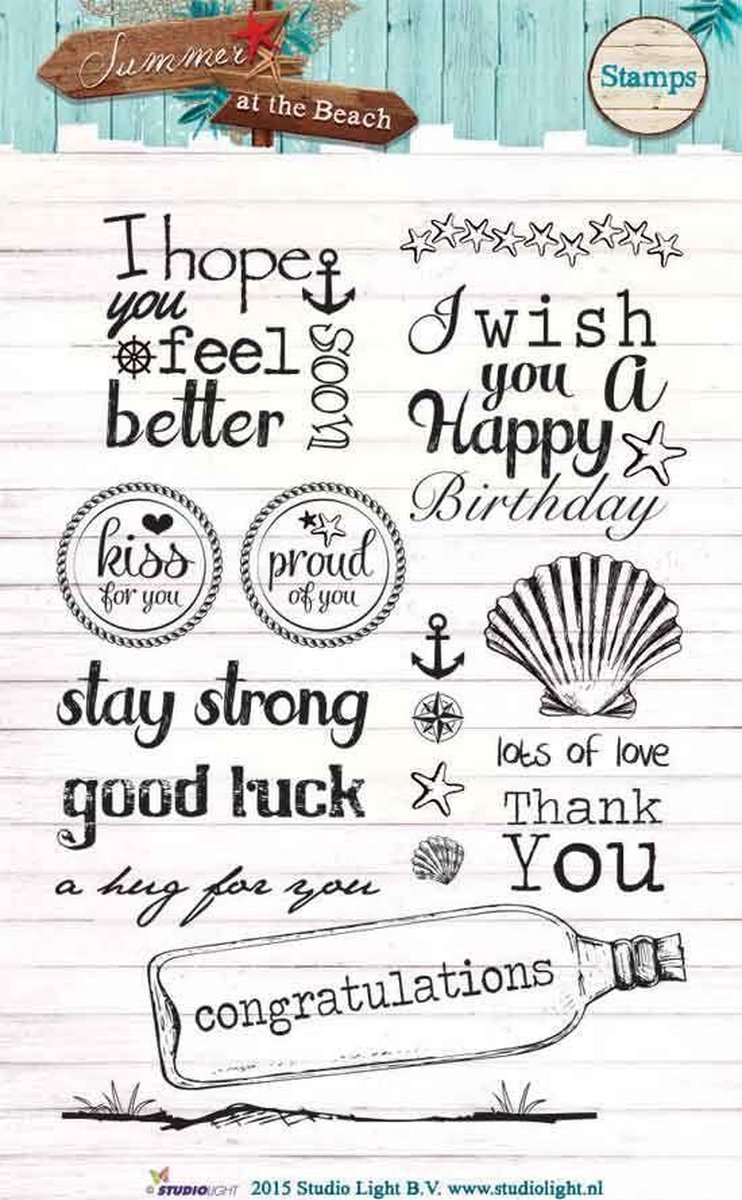 Summer
at the Beach
Stamps
I hope
you
feel
better
soon
I wish
you a
Happy
Birthday
kiss
for you
proud
of you
stay strong
good luck
a hug for you
lots of love
Thank
You
congratulations
© STUDIOLIGHT 2015 Studio Light B.V. www.studiolight.nl